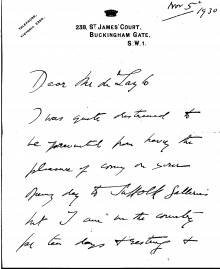 TELEPHONE,
VICTORIA 2360.
Nov 5th 1930
23B, ST JAMES' COURT,
BUCKINGHAM GATE,
S.W.1.
Dear Mr de
I was quite distressed to
be prevented from having the
pleasure of coming on your
opening day to Suffolk Galleries
but I am in the country
for ten days & resting &